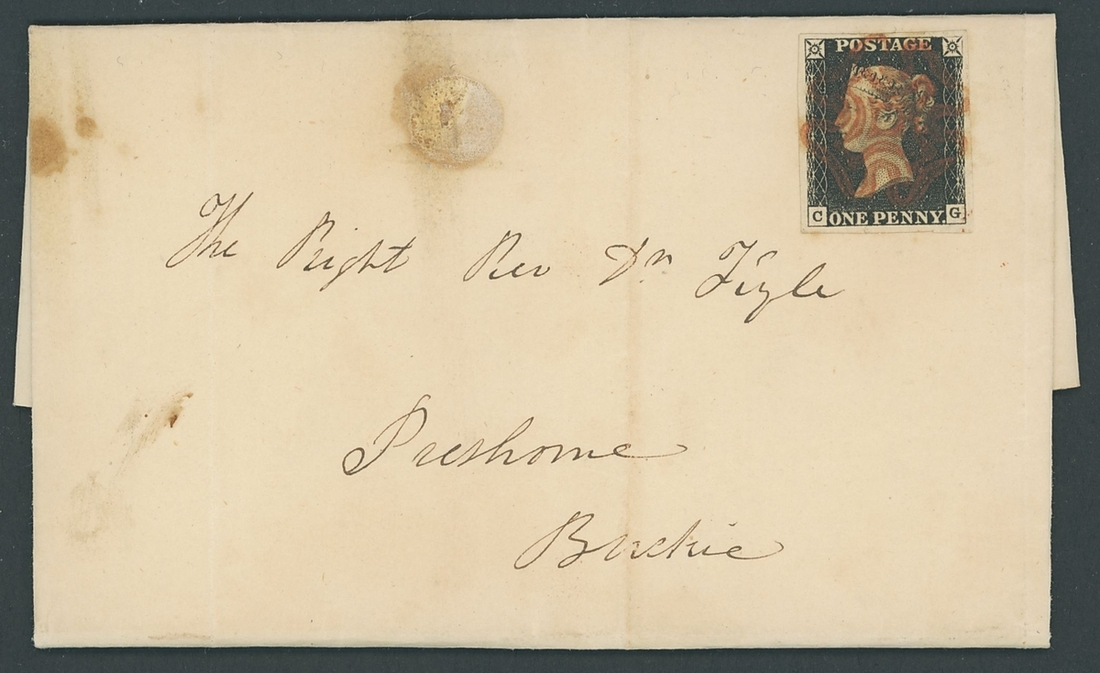 POSTAGE
C ONE PENNY G
The Right Rev Dr Figle
Preshome
Buckie